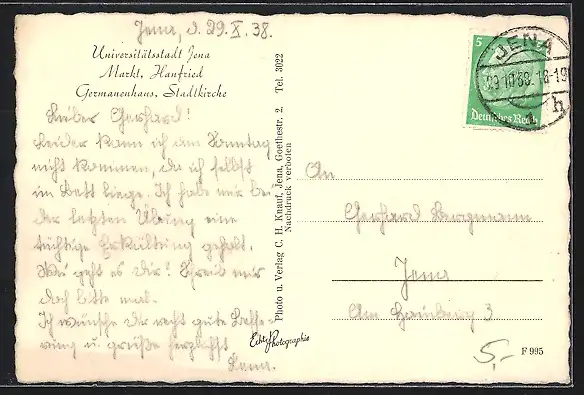 Jena, d. 29.X.38.
Universitätsstadt Jena
Markt, Hanfried
Germanenhaus, Stadtkirche
Lieber Gerhard!
Leider kann ich am Sonntag
nicht kommen, da ich selbst
im Bett liege. Ich habe mir bei
der letzten Übung eine
tüchtige Erkältung geholt.
Wie geht es Dir? Schreib mir
doch bitte mal.
Ich wünsche Dir recht gute Besse-
rung u. grüße herzlichst
Photo u. Verlag C. H. Knauf, Jena, Goethestr. 2. Tel. 3022
Nachdruck verboten
Echte Photographie
5
Deutsches Reich
JENA
29.10.38.18-19
h
An
Gerhard Bergmann
Jena
Am 3
5,-
F 995